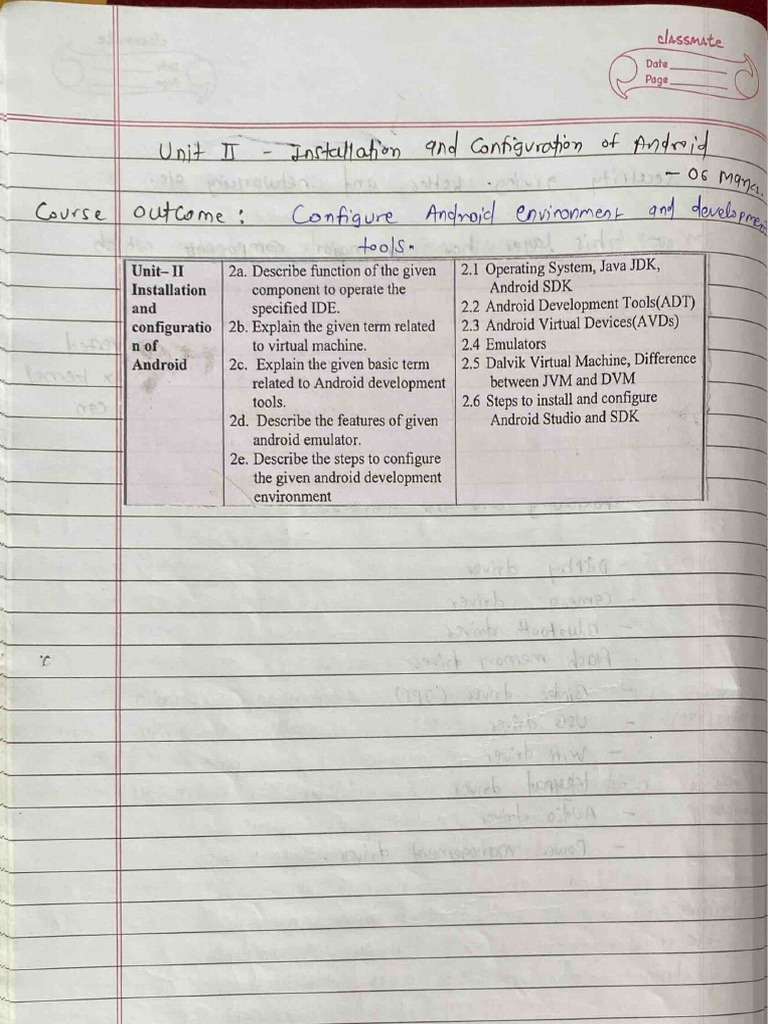 classmate
Date
Page
Unit II - Installation and Configuration of Android
- 06 Marks.
Course Outcome: Configure Android environment and development
tools.
Unit– II
Installation
and
configuratio
n of
Android
2a. Describe function of the given
component to operate the
specified IDE.
2b. Explain the given term related
to virtual machine.
2c. Explain the given basic term
related to Android development
tools.
2d. Describe the features of given
android emulator.
2e. Describe the steps to configure
the given android development
environment
2.1 Operating System, Java JDK,
Android SDK
2.2 Android Development Tools(ADT)
2.3 Android Virtual Devices(AVDs)
2.4 Emulators
2.5 Dalvik Virtual Machine, Difference
between JVM and DVM
2.6 Steps to install and configure
Android Studio and SDK
- Display driver
- Camera driver
- Bluetooth driver
- Flash memory driver
- Binder driver (IPC)
- USB driver
- Wifi driver
- Keypad driver
- Audio driver
- Power management driver